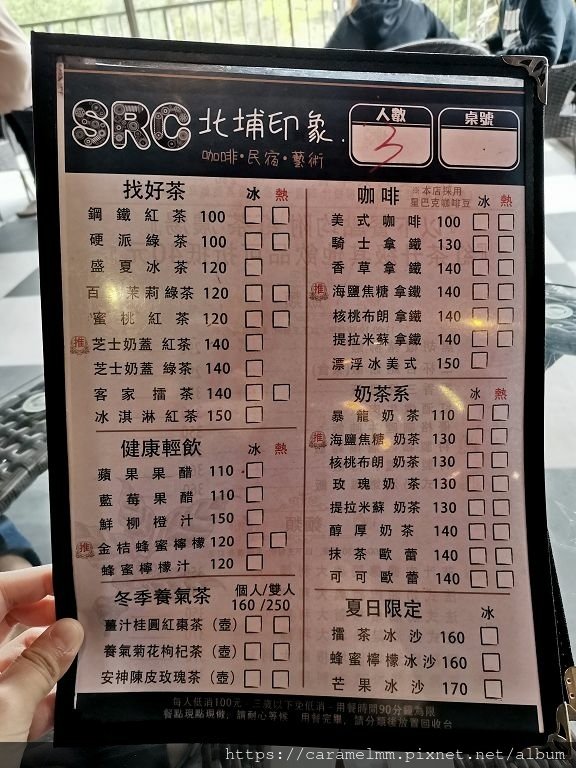 SRC 北埔印象
咖啡·民宿·藝術
人數
3
桌號
找好茶 冰 熱
鋼鐵紅茶 100
硬派綠茶 100
盛夏冰茶 120
百 茉莉綠茶 120
蜜桃紅茶 120
推 芝士奶蓋 紅茶 140
芝士奶蓋 綠茶 140
客家擂茶 140
冰淇淋紅茶 150
健康輕飲 冰 熱
蘋果果醋 110
藍莓果醋 110
鮮柳橙汁 150
推 金桔蜂蜜檸檬 120
蜂蜜檸檬汁 120
冬季養氣茶 個人/雙人
160/250
薑汁桂圓紅棗茶（壺）
養氣菊花枸杞茶（壺）
安神陳皮玫瑰茶（壺）
咖啡 ※本店採用
星巴克咖啡豆 冰 熱
美式咖啡 100
騎士拿鐵 130
香草拿鐵 140
推 海鹽焦糖 拿鐵 140
核桃布朗 拿鐵 140
提拉米蘇 拿鐵 140
漂浮冰美式 150
奶茶系 冰 熱
暴龍奶茶 110
推 海鹽焦糖 奶茶 130
核桃布朗 奶茶 130
玫瑰奶茶 130
提拉米蘇 奶茶 130
醇厚奶茶 140
抹茶歐蕾 140
可可歐蕾 140
夏日限定 冰
擂茶冰沙 160
蜂蜜檸檬冰沙 160
芒果冰沙 170
每人低消100元 三歲以下免低消－用餐時間90分鐘為限
餐點現點現做，請耐心等候 用餐完畢，請分類後放置回收台
https://caramelmm.pixnet.net/album